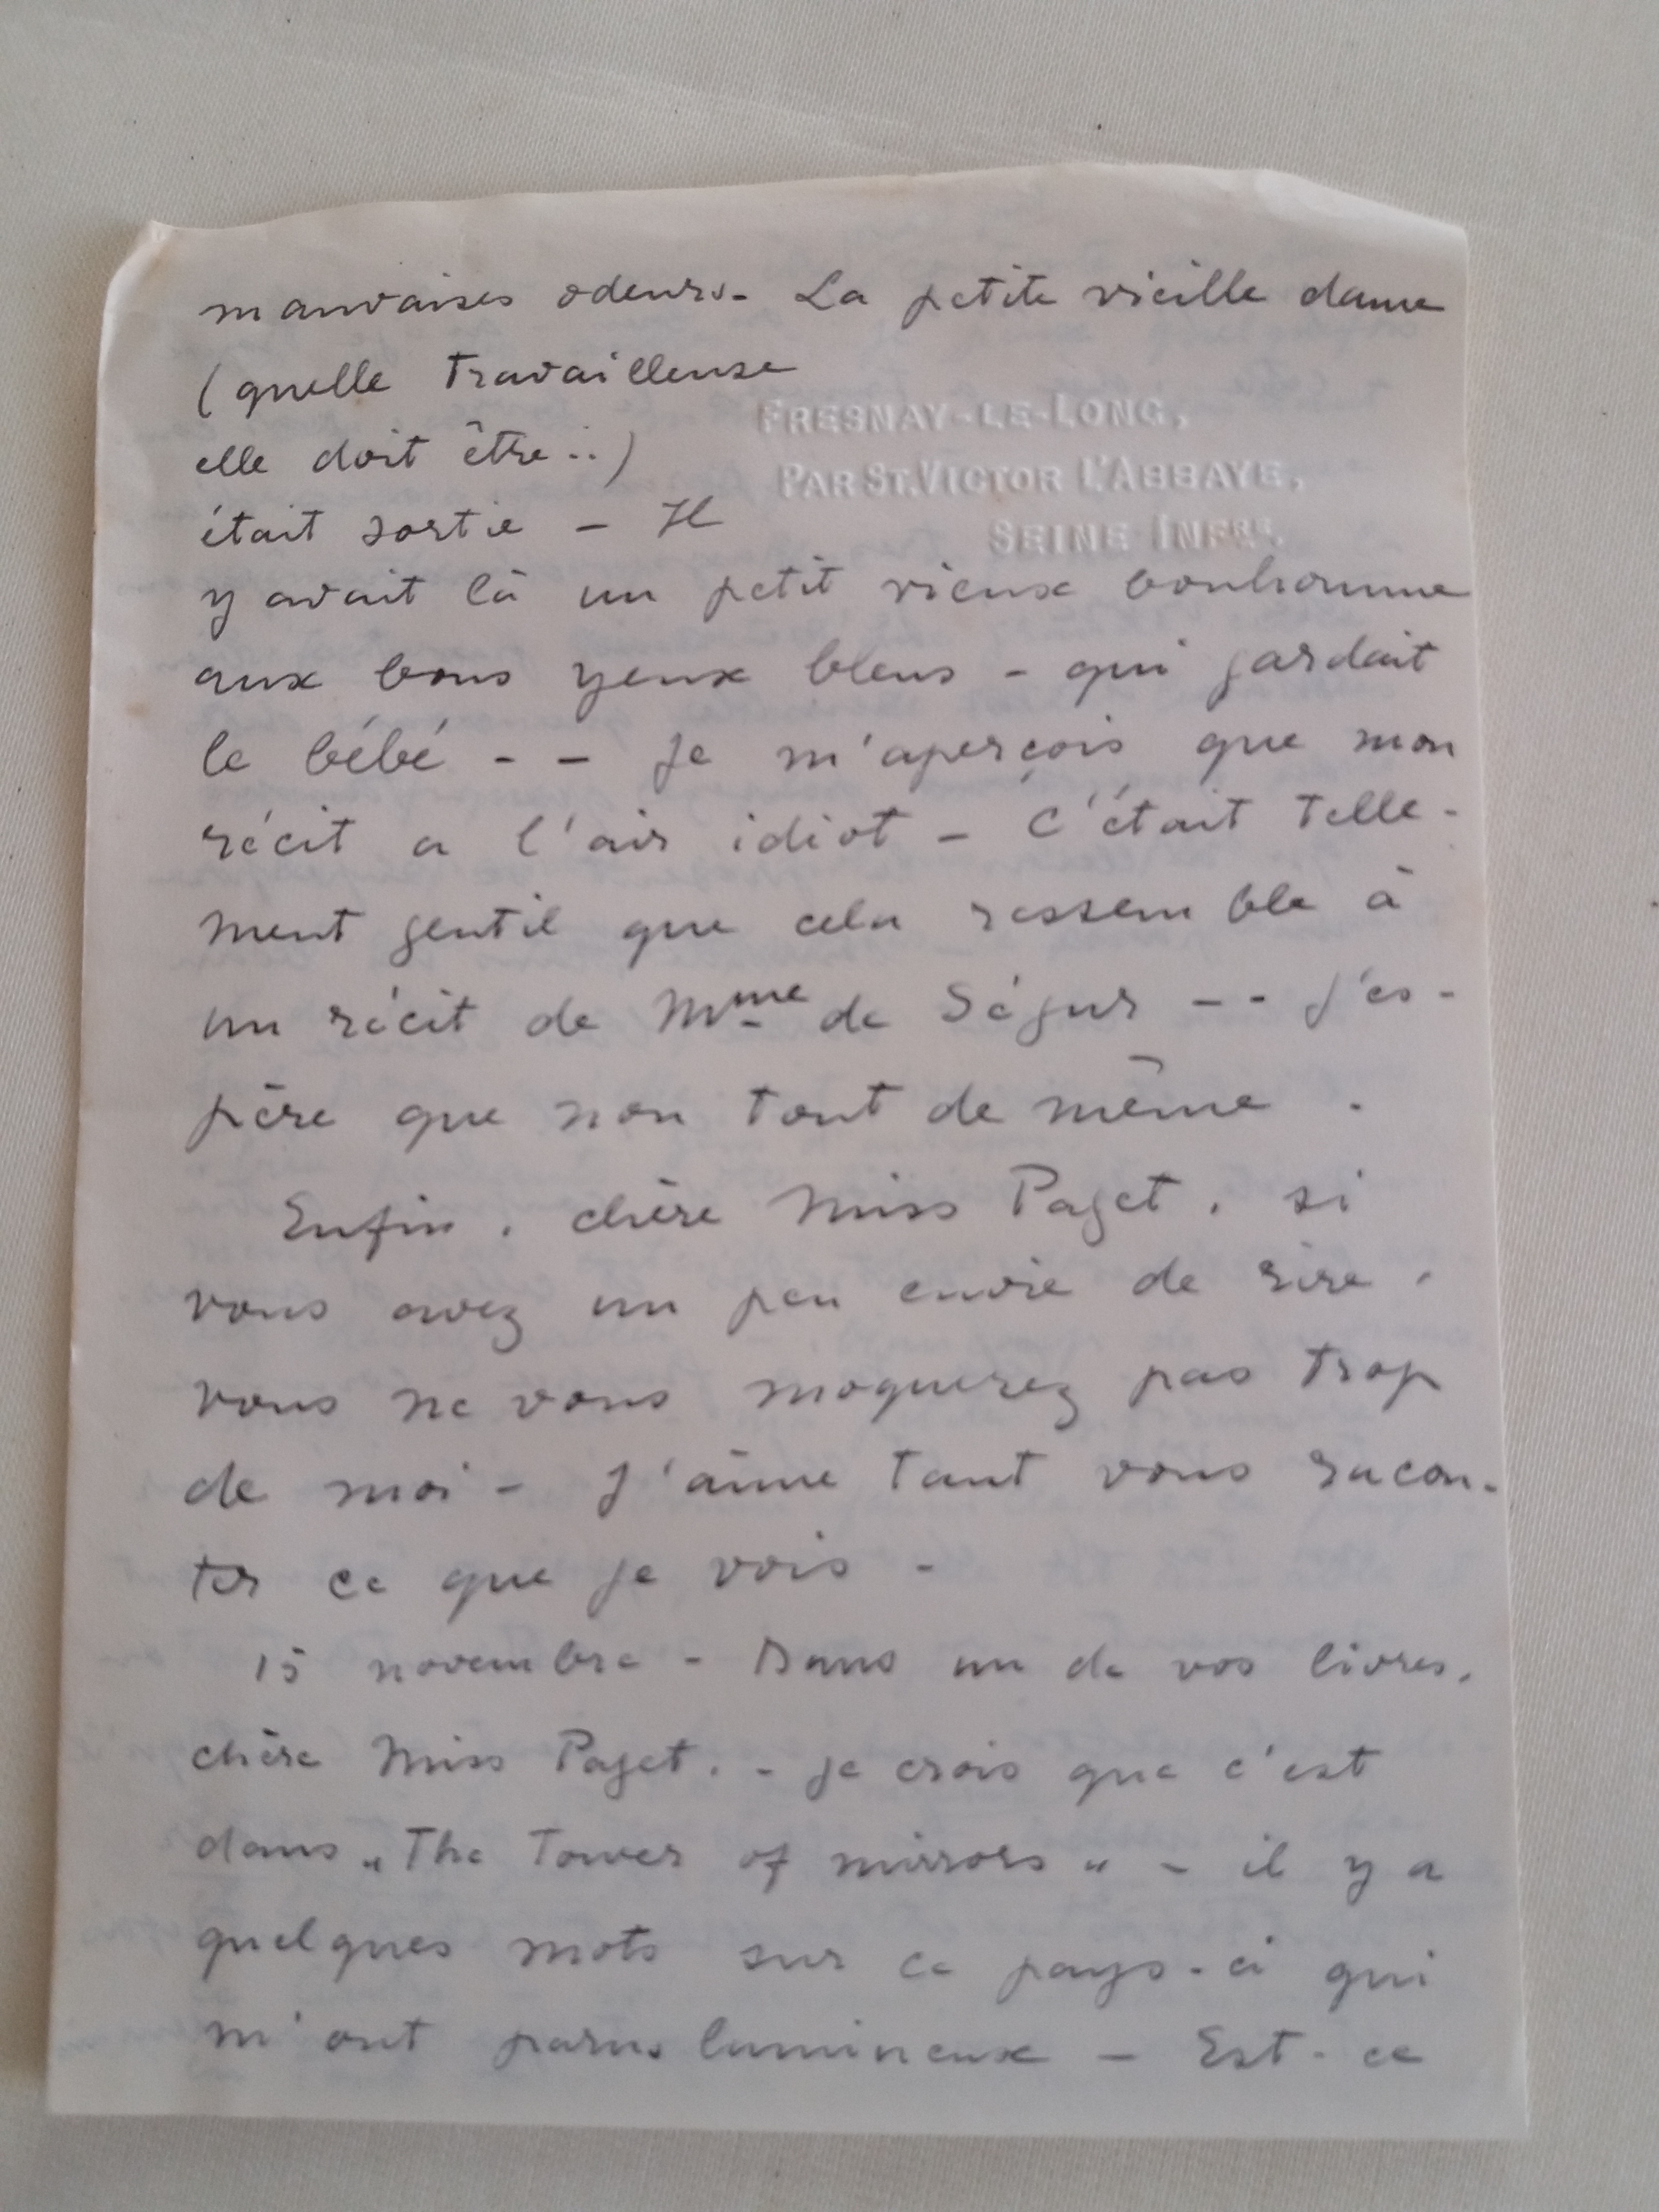 mauvaises odeurs - La petite vieille dame
(quelle travailleuse
FRESNAY-LE-LONG,
elle doit être ..)
PAR ST. VICTOR L'ABBAYE,
était sortie - Il
SEINE INFRE.
y avait là un petit vieux bonhomme
aux bons yeux bleus - qui gardait
le bébé - - Je m'aperçois que mon
récit a l'air idiot - C'était telle-
ment gentil que cela ressemble à
un récit de Mme de Ségur - - J'es-
père que non tout de même .
Enfin, chère Miss Paget, si
vous avez un peu envie de rire,
vous ne vous moquerez pas trop
de moi - J'aime tant vous racon-
ter ce que je vois -
15 novembre - Dans un de vos livres,
chère Miss Paget, - je crois que c'est
dans "The Tower of mirrors" - il y a
quelques mots sur ce pays-ci qui
m'ont parus lumineux - Est-ce